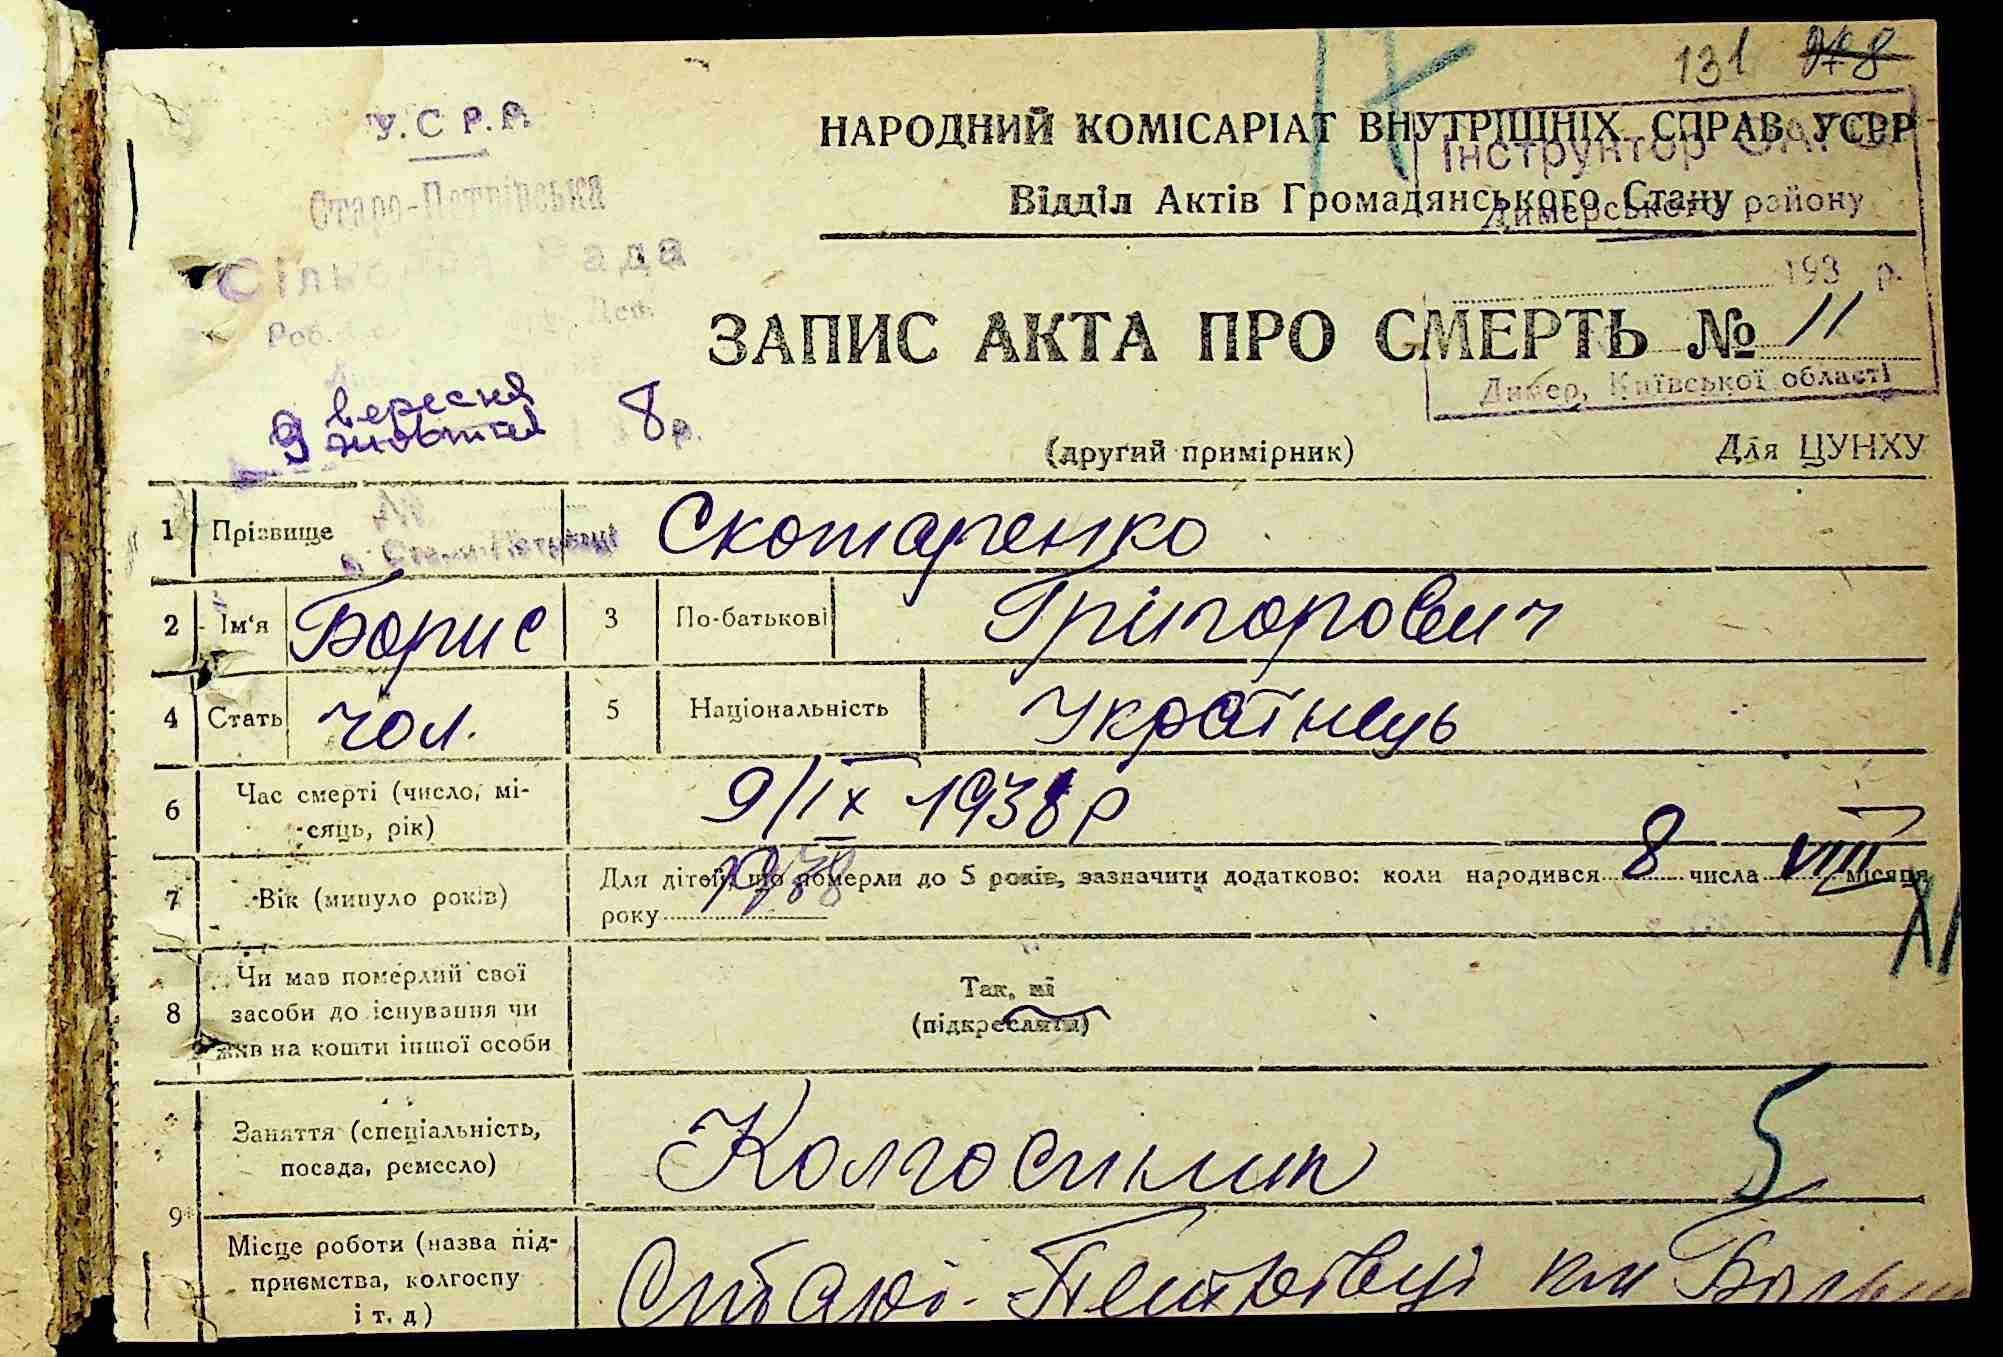 131
У.С Р.Р.
НАРОДНИЙ КОМІСАРІАТ ВНУТРІШНІХ СПРАВ УСРР
Інструктор
Старо-Петрівська
Відділ Актів Громадянського Стану
Димерського району
Сільська Рада
193 р.
ЗАПИС АКТА ПРО СМЕРТЬ № 11
Димер, Київської області
вересня
9 жовтня 8 р.
(другий примірник) Для ЦУНХУ
1 Прізвище Скотаренко
с. Старі-Петрівці
2 Ім'я Борис 3 По-батькові Григорович
4 Стать чол. 5 Національність Українець
6 Час смерті (число, мі-
сяць, рік) 9/IX 1938 р
7 Вік (минуло років) Для дітей, що померли до 5 років, зазначити додатково: коли народився 8 числа VIII місяця
1938 року
XI
8 Чи мав померлий свої
засоби до існування чи
жив на кошти іншої особи
Так, ні
(підкреслити)
9 Заняття (спеціальність,
посада, ремесло) Колгоспник
5
Місце роботи (назва під-
приємства, колгоспу
і т. д) Старі-Петрівці